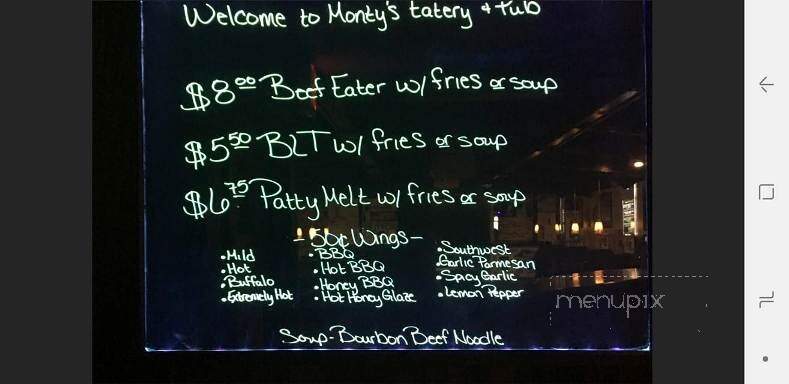 Welcome to Monty's Eatery & Pub
$8.00 Beef Eater w/ fries or soup
$5.50 BLT w/ fries or soup
$6.75 Patty Melt w/ fries or soup
-50¢ Wings-
•Mild
•Hot
•Buffalo
•Extremely Hot
•BBQ
•Hot BBQ
•Honey BBQ
•Hot Honey Glaze
•Southwest
•Garlic Parmesan
•Spicy Garlic
•Lemon Pepper
Soup-Bourbon Beef Noodle
menupix